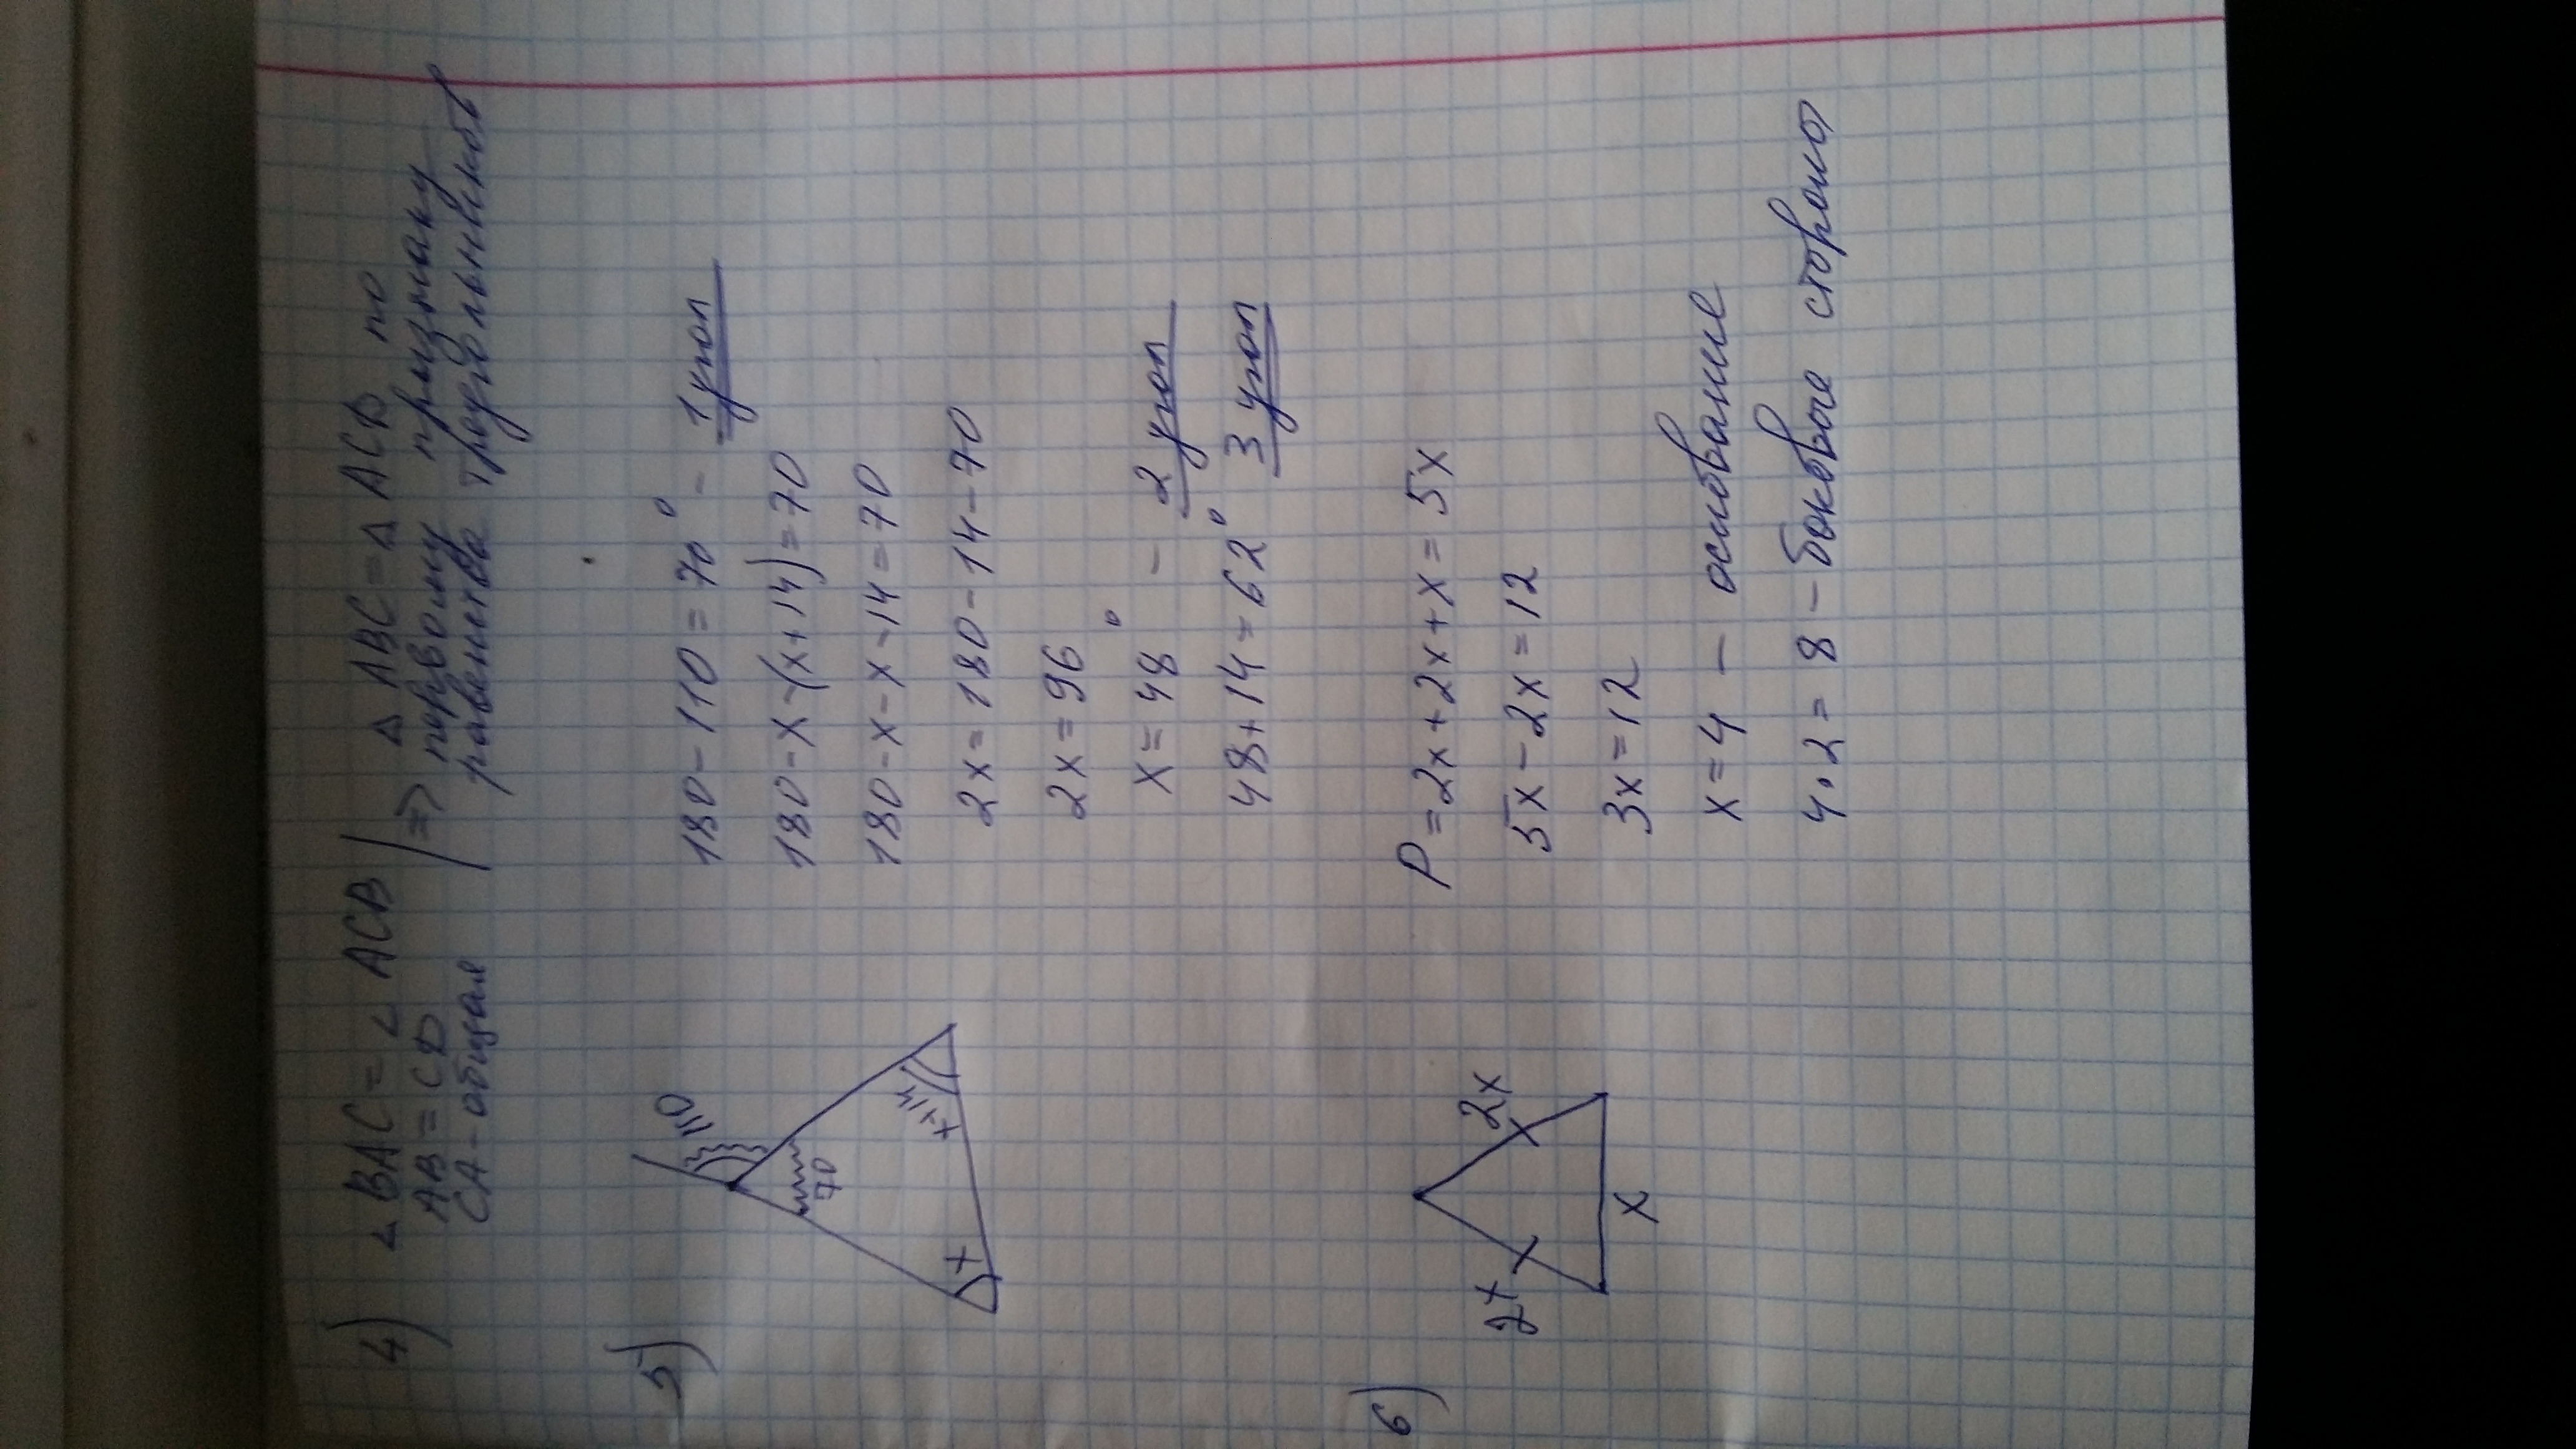 4) ∠ BAC = ∠ ACB | => Δ ABC = Δ ACD по
AB = CD первому признаку
CA - общая равенства треугольников
5) 110
70
x
x+14
180 - 110 = 70° - 1 угол
180 - x - (x + 14) = 70
180 - x - x - 14 = 70
2x = 180 - 14 - 70
2x = 96
x = 48° - 2 угол
48 + 14 = 62° 3 угол
6) 2x 2x
x
P = 2x + 2x + x = 5x
5x - 2x = 12
3x = 12
x = 4 - основание
4 · 2 = 8 - боковые стороны